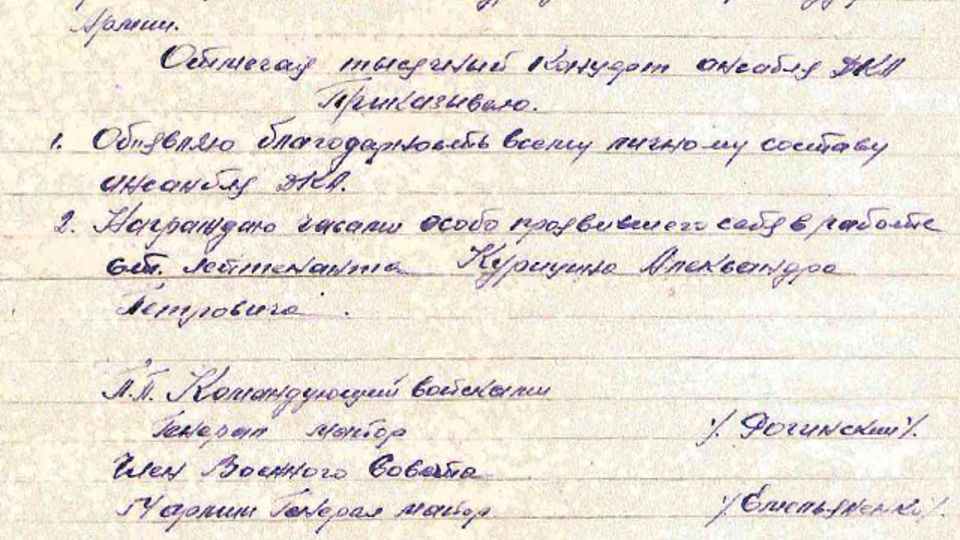 Армии.
Отмечая тысячный концерт ансабля ДКА
Приказываю.
1. Объявляю благодарность всему личному составу
ансамбля ДКА.
2. Награждаю часами особо проявившего себя в работе
ст. лейтенанта Курицина Александра
Петровича.
П.П. Командующий войсками
Генерал майор /. Рогинский /.
Член Военного Совета
Армии Генерал майор /Емельяненко/.